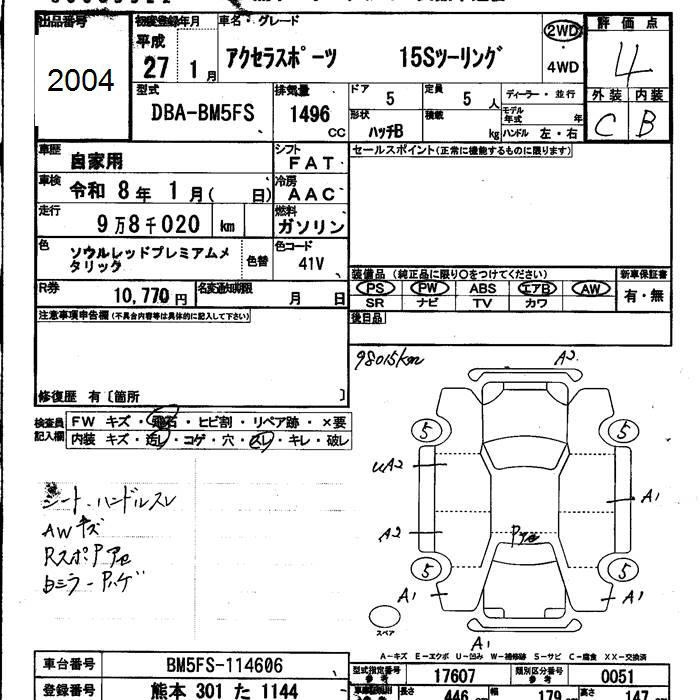 出品番号
2004
初度登録年月
平成
27 1 月
車名・グレード
アクセラスポーツ 15Sツーリング
2WD
・
4WD
評価点
4
外装 内装
C B
型式
DBA-BM5FS
排気量
1496
CC
ドア
5
定員
5 人
ディーラー・並行
形状
ハッチB
積載
kg
モデル年式 年
ハンドル 左・右
車歴
自家用
シフト
FAT
セールスポイント(正常に機能するものに限ります)
車検
令和 8年 1月( 日)
冷房
AAC
走行
9万8千020 km
燃料
ガソリン
色
ソウルレッドプレミアムメ
タリック
色替
色コード
41V
装備品 (純正品に限り○をつけてください)
新車保証書
PS PW ABS エアB AW
有・無
SR ナビ TV カワ
R券
10,770円
名変通知期限
月 日
後日品
注意事項申告欄(不具合内容等は具体的に記入して下さい)
修復歴 有〔箇所 〕
98015km
検査員
記入欄
FW キズ・飛石・ヒビ割・リペア跡・×要
内装 キズ・汚レ・コゲ・穴・スレ・キレ・破レ
シート、ハンドルスレ
AWキズ
RスポPアセ
A2
5 5
uA2
A1
A2
5 5
A1 A1
スペア
A1
A−キズ E−エクボ U−凹み W−補修跡 S−サビ C−腐食 XX−交換済
車台番号
BM5FS-114606
型式指定番号
参考
17607
類別区分番号
参考
0051
登録番号
熊本 301 た 1144
長さ
446 cm
幅
179 cm
高さ
147 cm